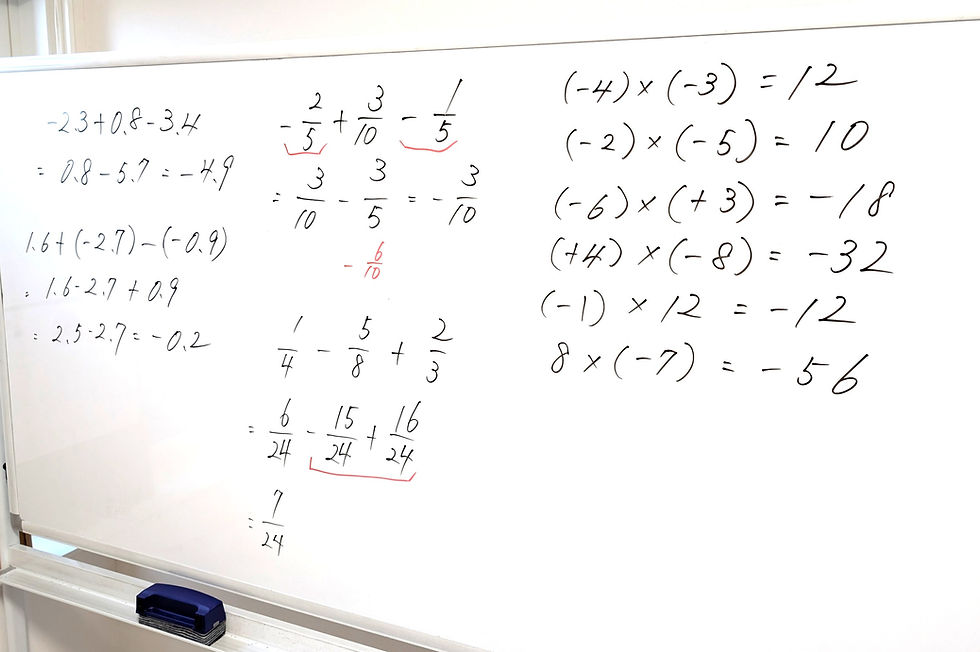 -2.3+0.8-3.4
= 0.8-5.7 = -4.9
1.6+(-2.7)-(-0.9)
= 1.6-2.7+0.9
= 2.5-2.7 = -0.2
-2/5 + 3/10 - 1/5
= 3/10 - 3/5 = -3/10
-6/10
1/4 - 5/8 + 2/3
= 6/24 - 15/24 + 16/24
= 7/24
(-4)×(-3) = 12
(-2)×(-5) = 10
(-6)×(+3) = -18
(+4)×(-8) = -32
(-1)×12 = -12
8×(-7) = -56